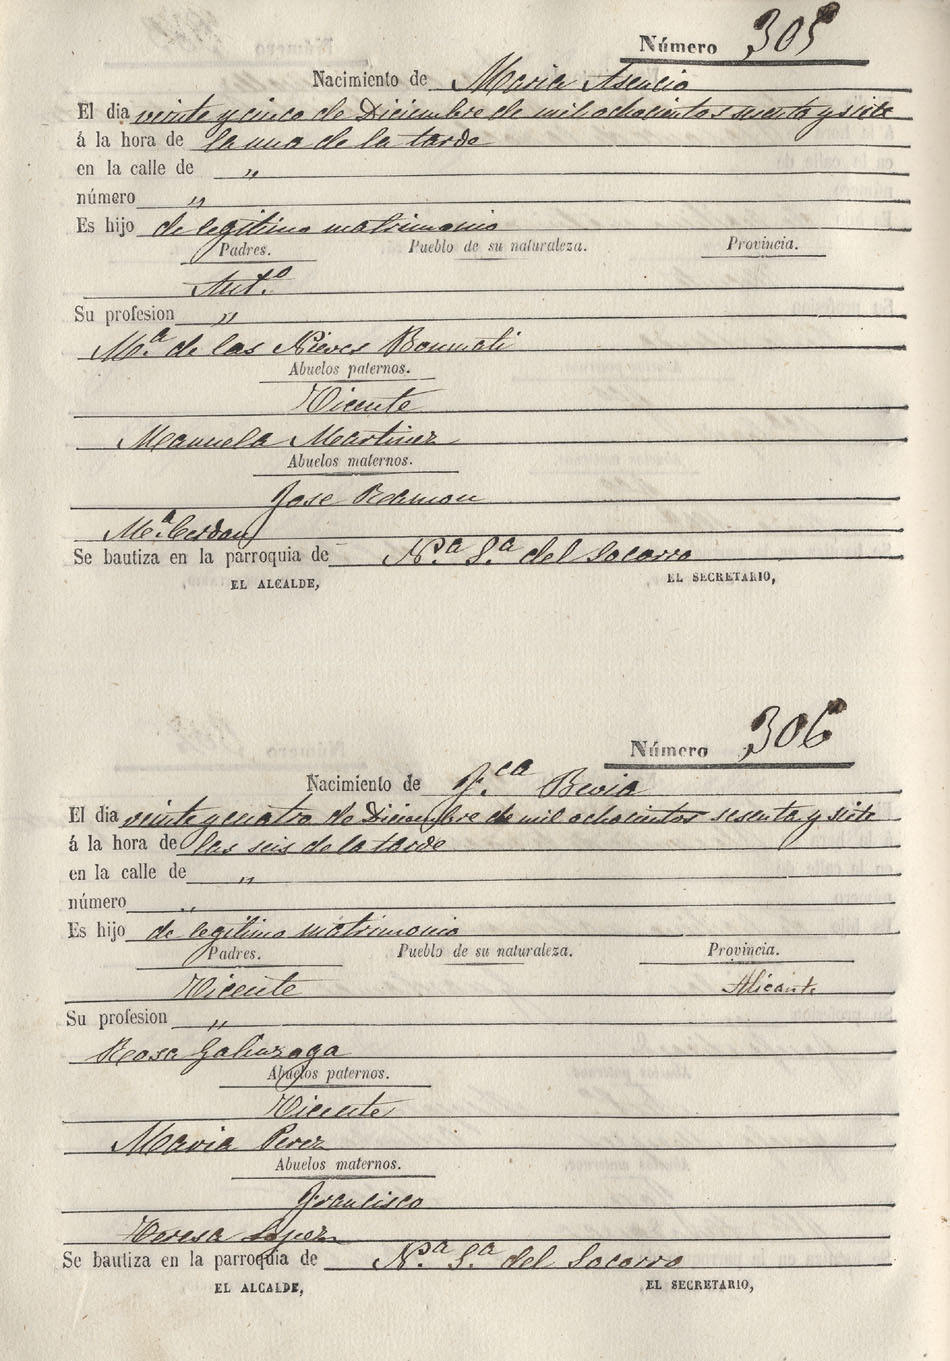 Número 305
Nacimiento de Maria Asencio
El dia veinte y cinco de Diciembre de mil ochocientos sesenta y siete
á la hora de la una de la tarde
en la calle de "
número "
Es hijo de legitimo matrimonio
Padres. Pueblo de su naturaleza. Provincia.
Ant.º
Su profesion "
M.ª de las Nieves Bonmati
Abuelos paternos.
Vicente
Manuela Martinez
Abuelos maternos.
Jose Ramon
M.ª Cerdan
Se bautiza en la parroquia de N.ª S.ª del Socorro
EL ALCALDE, EL SECRETARIO,
Número 306
Nacimiento de F.ca Bevia
El dia veinte y cuatro de Diciembre de mil ochocientos sesenta y siete
á la hora de las seis de la tarde
en la calle de "
número "
Es hijo de legitimo matrimonio
Padres. Pueblo de su naturaleza. Provincia.
Vicente Alicante
Su profesion "
Rosa Galinzoga
Abuelos paternos.
Vicente
Maria Perez
Abuelos maternos.
Francisco
Teresa Lopez
Se bautiza en la parroquia de N.ª S.ª del Socorro
EL ALCALDE, EL SECRETARIO,